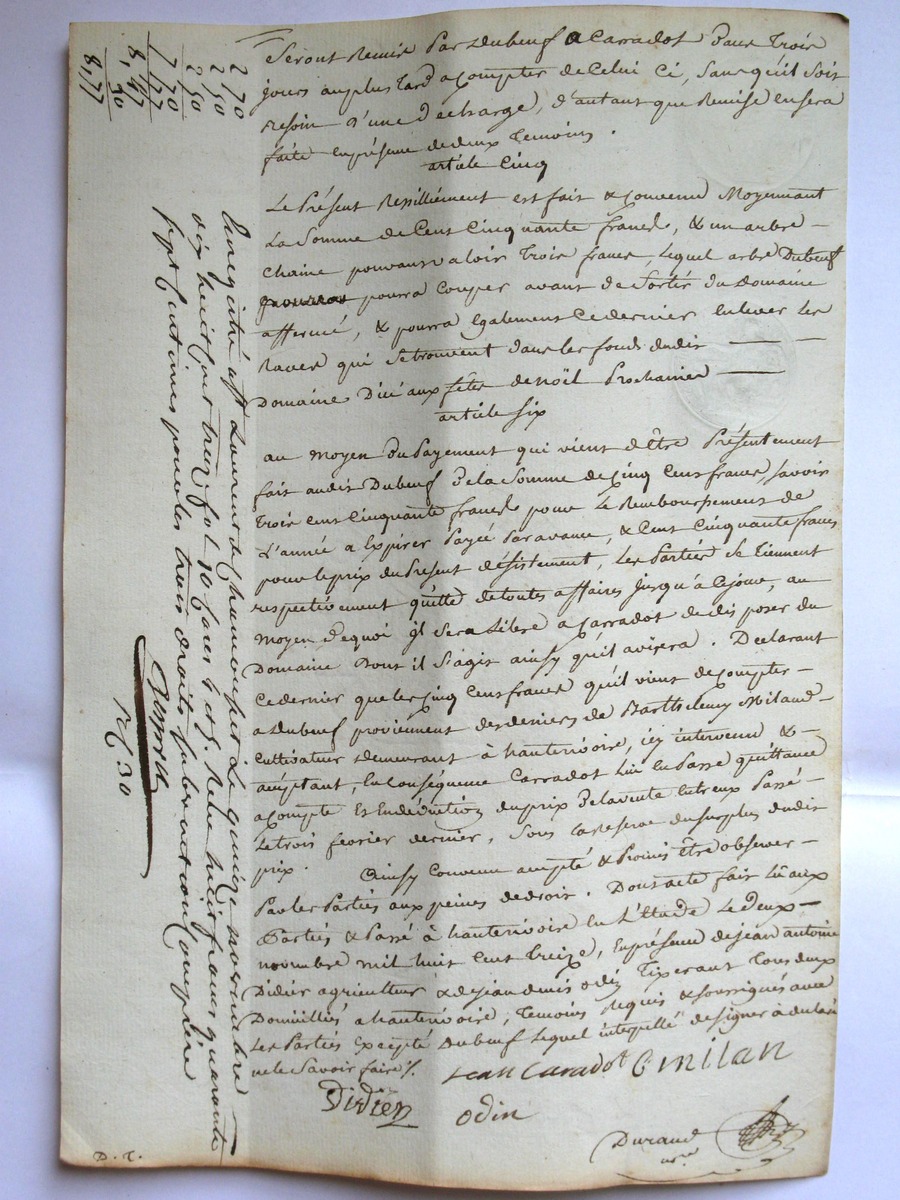 Seront Remis Par Dubeuf a Carradot Dans Trois
jours au plus Tard a Compter de Celui Ci, Sans qu'il Soit
Besoin d'une Decharge, d'autant que Remise en Sera
faite en présence de deux Temoins.
article Cinq
Le Présent Resilliément est fait & Convenu Moyennant
La Somme de Cent Cinquante francs, & un arbre
chaine pouvant valoir Trois francs, Lequel arbre Dubeuf
pourra Couper avant de Sortir du Domaine
affermé, & pourra Egalement Ce dernier enlever les
Raves qui Se trouvent dans les fonds dudit
Domaine D'ici aux fêtes de noël Prochaines
article Six
au moyen du Payement qui vient d'être Présentement
fait audit Dubeuf De la Somme de Cinq Cent francs, Savoir
Trois Cent Cinquante francs pour Le Remboursement de
L'année a Expirer Payée Par avance, & Cent Cinquante francs
pour le prix du Present désistement, Les Parties Se Tiennent
respectivement quitte de toutes affaires Jusqu'à Ce jour, au
moyen de quoi il Sera Libre a Carradot de disposer du
Domaine Dont il S'agit ainsy qu'il avisera. Declarant
Ce dernier que les Cinq Cent francs qu'il vient de Compter
a Dubeuf proviennent des deniers de Barthelemy Miland
Cultivateur demeurant à hauterivoire, icy intervenu &
acceptant, En Conséquence Carradot Lui En Passe quittance
a Compte Et En déduction du prix De la vente Entreux Passé
Le trois février dernier, Sous La reserve du Surplus dudit
prix. Ainsy Convenu accepté & Promis Être observer
Par les Parties aux peines de droit. Dont acte fait Lû aux
Parties & Passé à hauterivoire En L'Etude Le Deux
novembre mil huit Cent Treize, En présence de Jean antoine
Didier agriculteur & de Jean denis odin Tixerant Tous deux
Domiciliés a hauterivoire, Temoins Requis & Soussignés avec
Les Parties Excepté Dubeuf Lequel interpellé de Signer a déclaré
ne le Savoir faire /.
Jean Caradot B milan
Didier odin
Durand
nre
D. T.
2 70
2 50
2 50
7 70
77
8, 47
30
8, 77
Enregistré à St Laurent de Chamousset Le quinze novembre
dix huit cent treize fol 10 Reçu huit francs quarante
Sept Centimes pour les trois droits Subvention Comprise